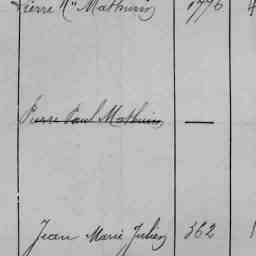 Pierre Mie Mathurin 1776
Pierre Paul Mathurin —
Jean Marie Julien 362